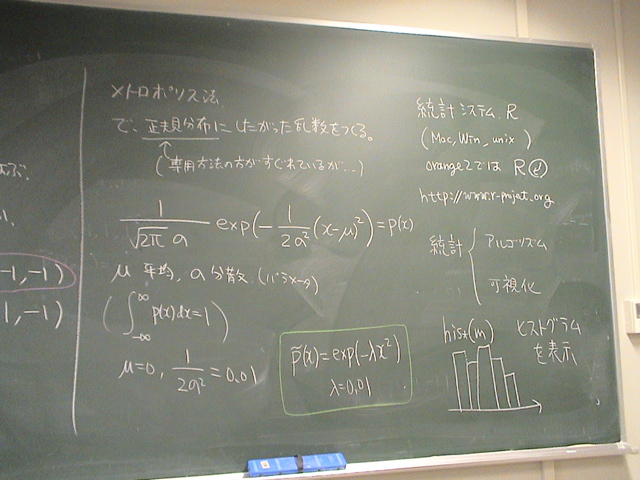 -1, -1)
1, -1)
メトロポリス法
で、正規分布にしたがった乱数をつくる。
(専用方法の方がすぐれているが…)
1/√2π a exp(-1/2a²(x-μ)²)=p(x)
μ 平均, a 分散. (パラメータ)
(∫_{-∞}^{∞} p(x)dx=1)
μ=0, 1/2a²=0,01
p̃(x)=exp(-λx²)
λ=0,01
統計システム R
(Mac, Win, unix)
orange2では R
http://www.r-projat.org
統計 { アルゴリズム
可視化
hist(m) ヒストグラム
を表示